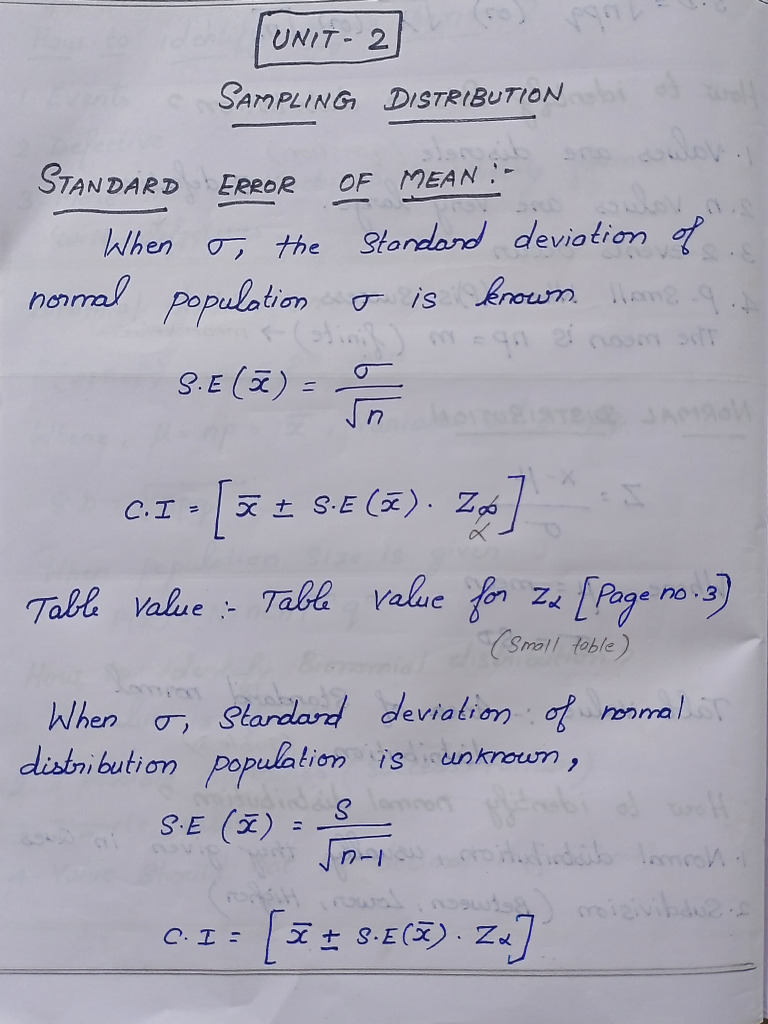 UNIT - 2
SAMPLING DISTRIBUTION
STANDARD ERROR OF MEAN :-
When σ, the Standard deviation of
normal population σ is known.
S.E (x̄) = σ / √n
C.I = [ x̄ ± S.E (x̄) . Zα ]
Table Value :- Table Value for Zα [Page no. 3]
(Small table)
When σ, Standard deviation of normal
distribution population is unknown,
S.E (x̄) = S / √n-1
C.I = [ x̄ ± S.E(x̄) . Zα ]